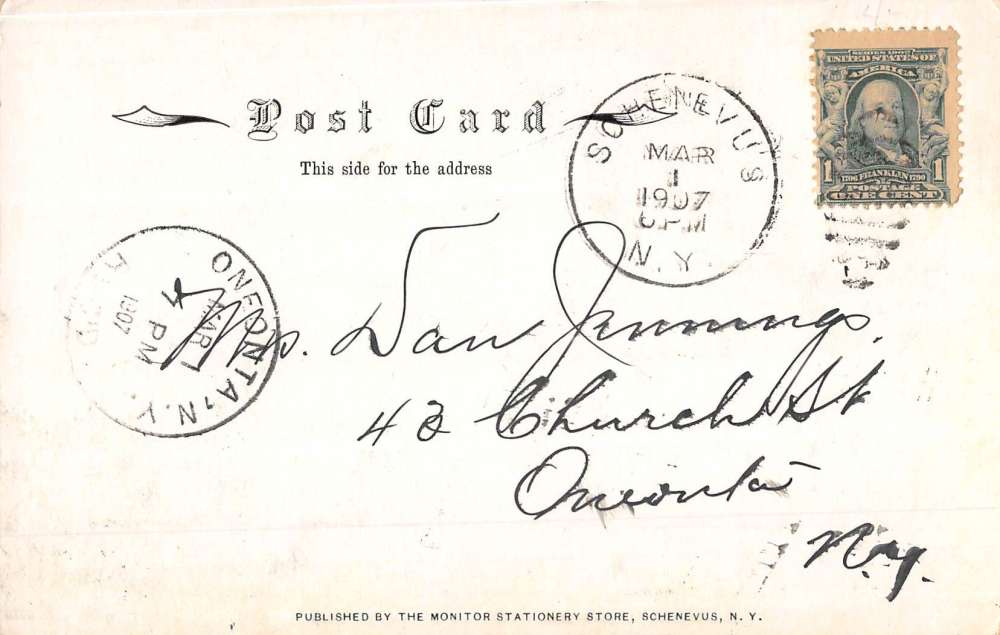 Post Card
This side for the address
SCHENEVUS
MAR
1
1907
6 PM
N.Y.
SERIES 1902
UNITED STATES OF
AMERICA
1 1706 FRANKLIN 1790 1
POSTAGE
ONE CENT
ONEONTA, N.Y.
MAR 1
PM
1907
Mrs. Dan Jennings.
43 Church St
Oneonta
N.y.
PUBLISHED BY THE MONITOR STATIONERY STORE, SCHENEVUS, N. Y.